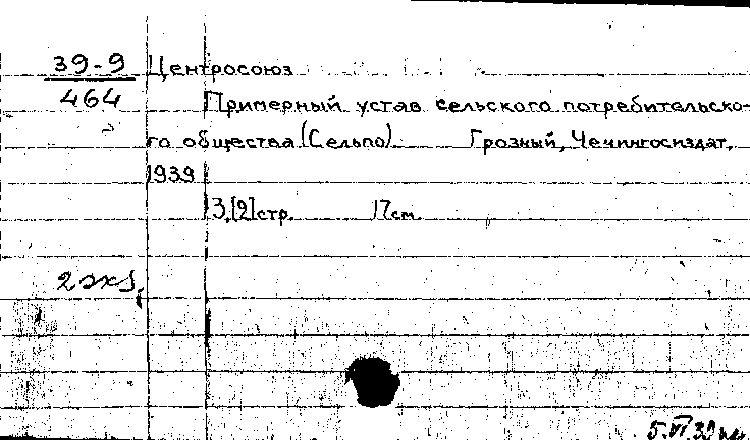 39-9 Центросоюз
464 Примерный устав сельского потребительско-
го общества (Сельпо). Грозный, Чечингосиздат,
1939
13,[2]стр. 17см.
2 экз.
5.VI.39